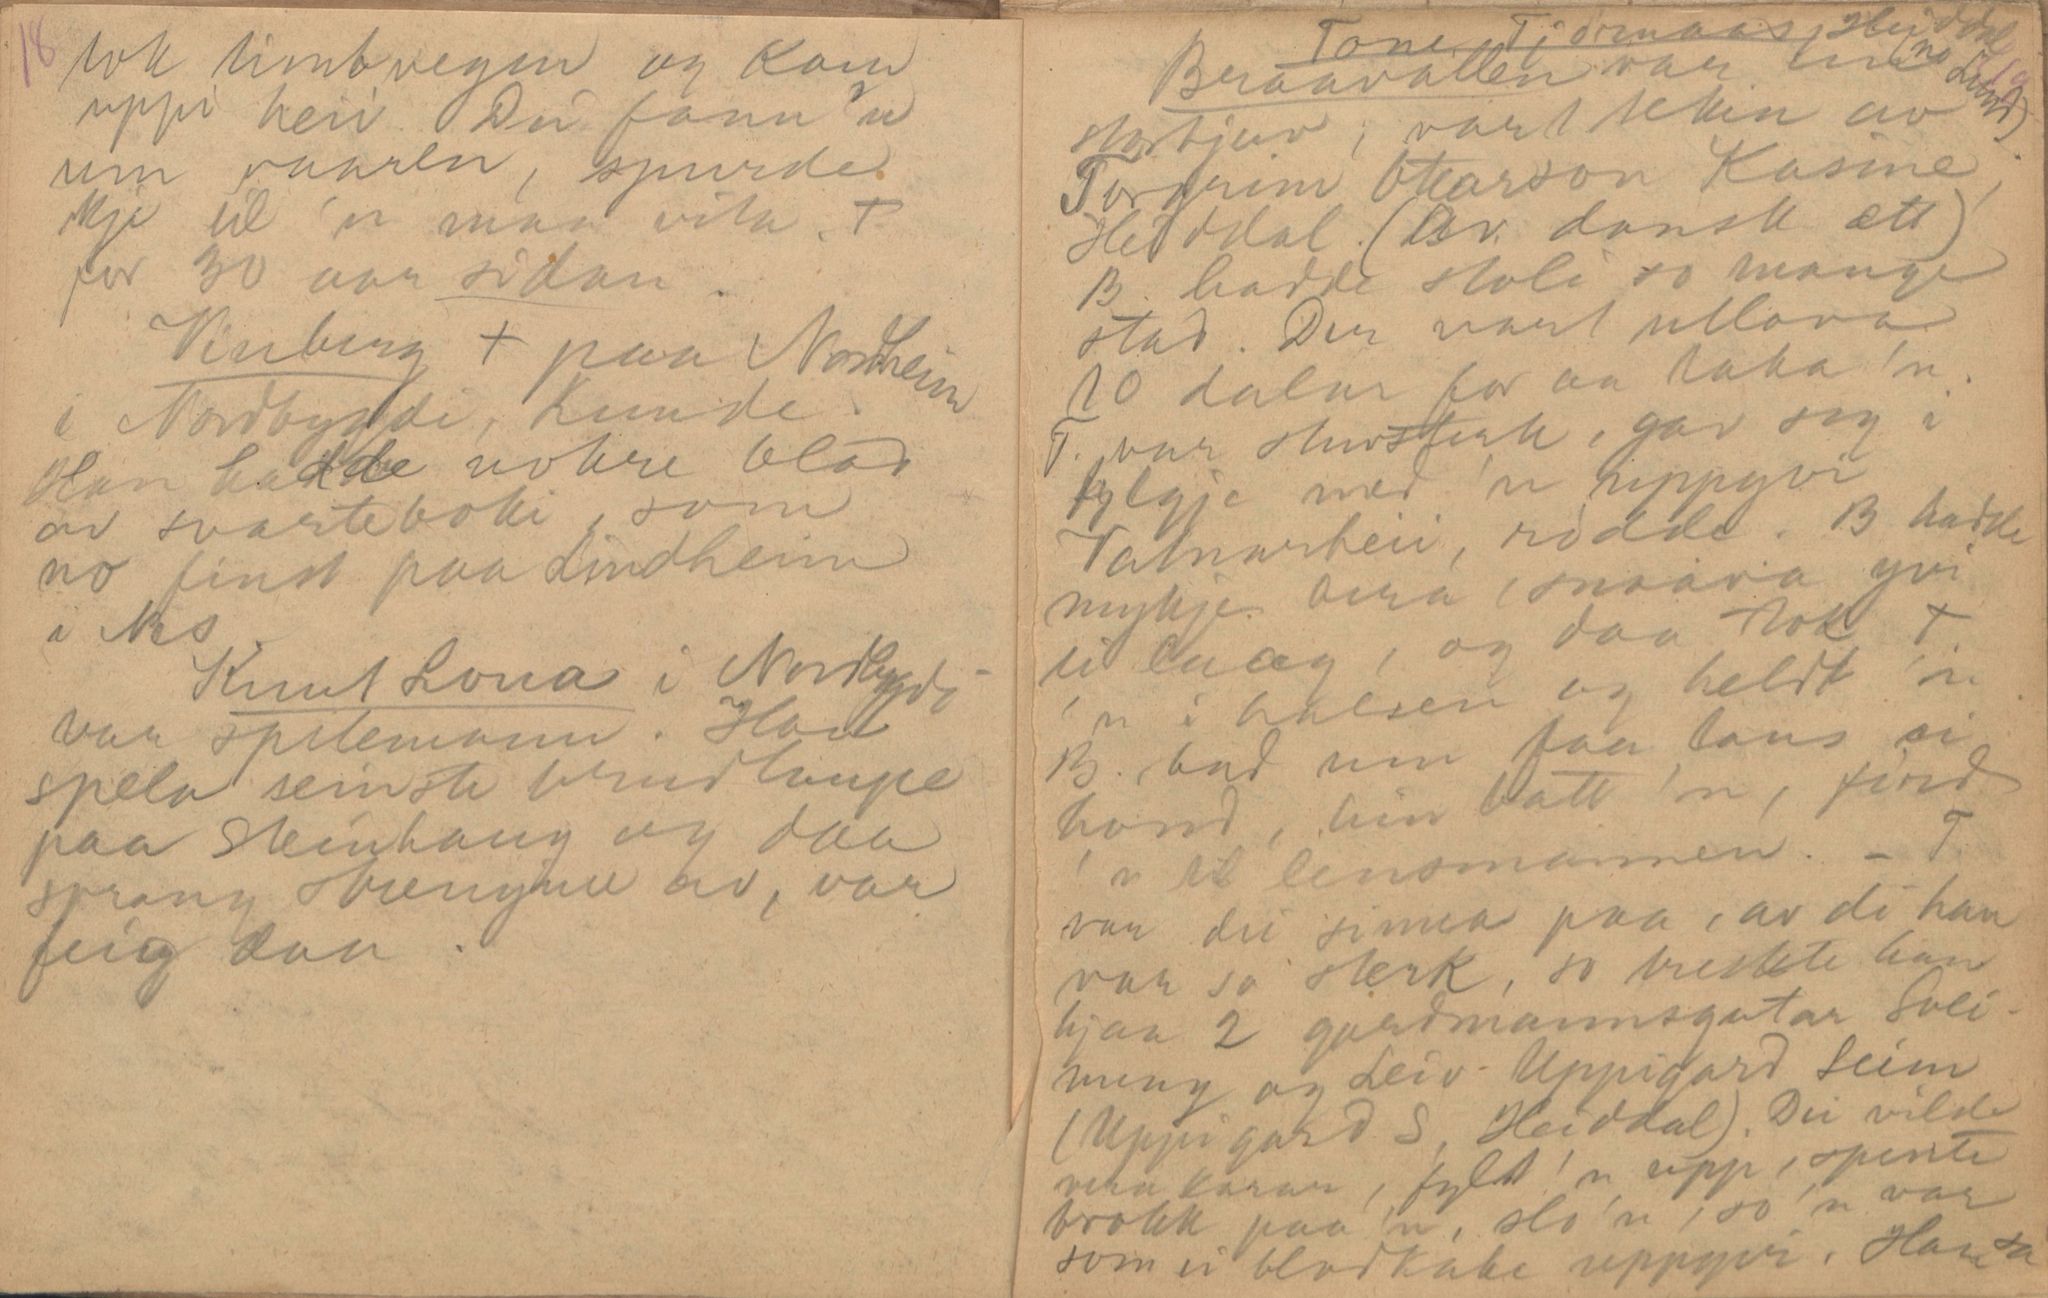 18
tok timbvegen og kom
uppi heii. Dei fann 'n
um vaaren, spurde
ikje til 'n maa vita. +
for 30 aar sidan.
Vinberg + paa Nordheim
i Nordbygdi, kunde.
Han hadde nokre blad
av svarteboki, som
no finst paa Lindheim
i Nes.
Knut Lona i Nordbygdi
var spelemann. Han
spela seinste brudlaupe
paa Steinhaug og daa
sprang strengjine av, var
feig daa.
Tone Tjømaas, Heiddal
(no
19
Braavallen var ein
storkjuv, vart tekin av
Torgrim Ottarson Kasine,
Heiddal. (Av dansk ætt)
B. hadde stoli so mange
stad. Der vart utlova
10 dalar for aa taka 'n.
T. var storsterk, gav seg i
fylgje med 'n uppyvi
Vatnarheii, ridde. B hadde
mykje bera, snaava yvi
ei laag, og daa tok T.
'n i halsen og heldt 'n.
B. bad um faa laus ei
hond, hin batt 'n, förd
'n til lensmannen. – T.
var dei sinna paa, av di han
var so sterk, so treskte han
hjaa 2 gardmannsgutar Svei-
nung og Leiv Uppigard Seim
(Uppigard S, Heiddal). Dei vilde
vera karar, fyld 'n upp, spente
brokk paa 'n, slo 'n, so 'n var
som ei blodkake uppyvi. Han sa